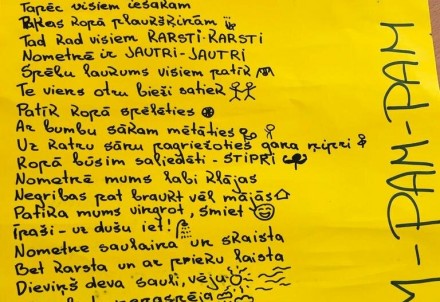 Tāpēc visiem iesakām
Plaukas kopā plaukšķinām
Tad kad visiem KARSTI-KARSTI
Nometnē ir JAUTRI-JAUTRI
Spēļu laukums visiem patīk
Te viens otru bieži satiek
Patīk kopā spēlēties
Ar bumbu sākam mētāties
Uz katru sānu pagriežoties gana ņipri
Kopā būsim saliedēti - STIPRI
Nometnē mums labi klājas
Negribas pat braukt vēl mājās
Patika mums vingrot, smiet
Īpaši - uz dušu iet!
Nometne saulaina un skaista
Bet karsta un ar prieku laista
Dieviņš deva sauli, vēju
M-PAM-PAM